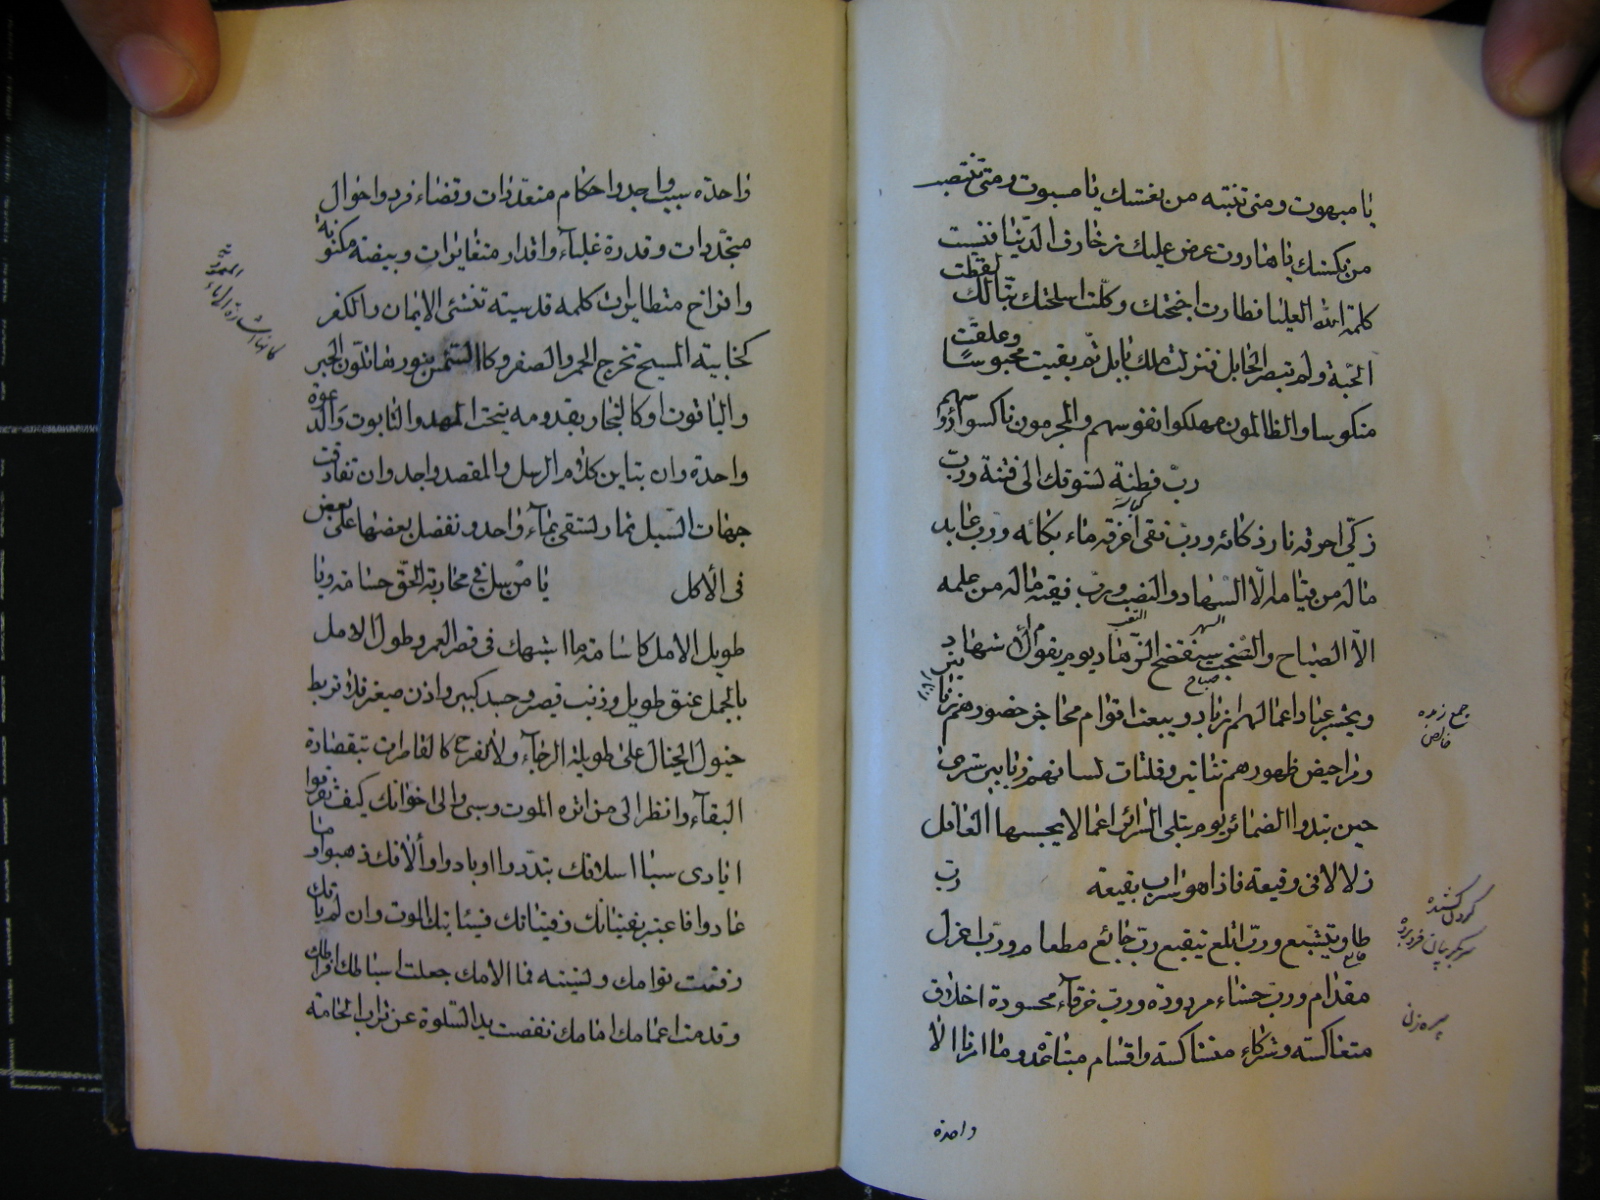 يا مبهوت ومتى تنتبه من بغشتك يا مسبوت ومتى تنتصب
من نكستك يا هاروت عرض عليك زخارف الدنيا فنسيت
كلمة الله العليا فطارت اجنحتك وكلت اسلحتك تبالك لقطت
الحبة ولم تبصر الحابل فنزلت ملك بابل ثم بقيت محبوسا وعلقت
منكوسا والظالمون مهلكوا نفوسهم والمجرمون ناكسوا رؤسهم
رب فطنة تسوقك الى فتنة ورب
زكى احرقه نار ذكائه ورب تقى اغرقه ماء بكائه ورب عابد
ماله من قيامه الا السهاد والنصب ورب فقيه ماله من علمه
السهر التعب
الا الصياح والصخب سيفتضح الزهاد يوم يقوم الاشهاد
صياح
ويخبر عباد اعمالهم زباد ويبعث اقوام محاجر خضورهم
جمع زبده
خالص
ومراحيض ظهورهم نتانير وفلتات لسانهم زنابير سترى
حين تبدوا الضمائر يوم تبلى السرائر اعمالا يحسبها الغافل
زلالا فى وقيعة فاذا هو سراب بقيعة رب
كردن كشنده
طاو يتشبع ورب ابلع يتقبع رب جائع مطعام ورب اعزل
مقدام ورب حسناء مردودة ورب خرقاء محسودة اخلاق
متعاكسة وشركاء متشاكسة واقسام متباعدة وما امرنا الا
واحدة
واحدة سبب واحد واحكام متعددات وقضاء فرد واحوال
متجددات وقدرة غلباء واقدار متغايرات وبيضة مكنونة
وافراخ متطايرات كلمة قدسية تغشى الايمان والكفر
كخابية المسيح تخرج الحمر والصفر وكالشمس بنورها تلون الحجر
والياقوت او كالنجار بقدومه ينحت المهد والتابوت والدعوة
واحدة وان تباين كلام الرسل والمقصد واحد وان تفاوت
جهات السبل ثمار تسقى بماء واحد ونفضل بعضها على بعض
فى الأكل يا من سل فى محاربة الحق حسامه ويا
طويل الامل كاسامة ما اشبهك فى قصر العمر وطول الامل
بالجمل عنق طويل وذنب قصير وجسد كبير واذن صغير فلا تربط
خيول الخيال على طويلة الرجاء ولا تفرح كالقامرات بنقضادة
البقاء وانظر الى من اثره الموت وسبى والى اخوانك كيف تفرقوا
ايادى سبا اسلافك بتدروا او بادوا وألافك ذهبوا وما
عادوا فاعتبر بفتيانك وفتياتك فسيأتيك الموت وان لم يأتك
دفنت توامك ونسيته فما الأمك جعلت اسباطك افراطك
وقدمت اعمامك امامك نفضت يد السلوة عن تراب الحامة